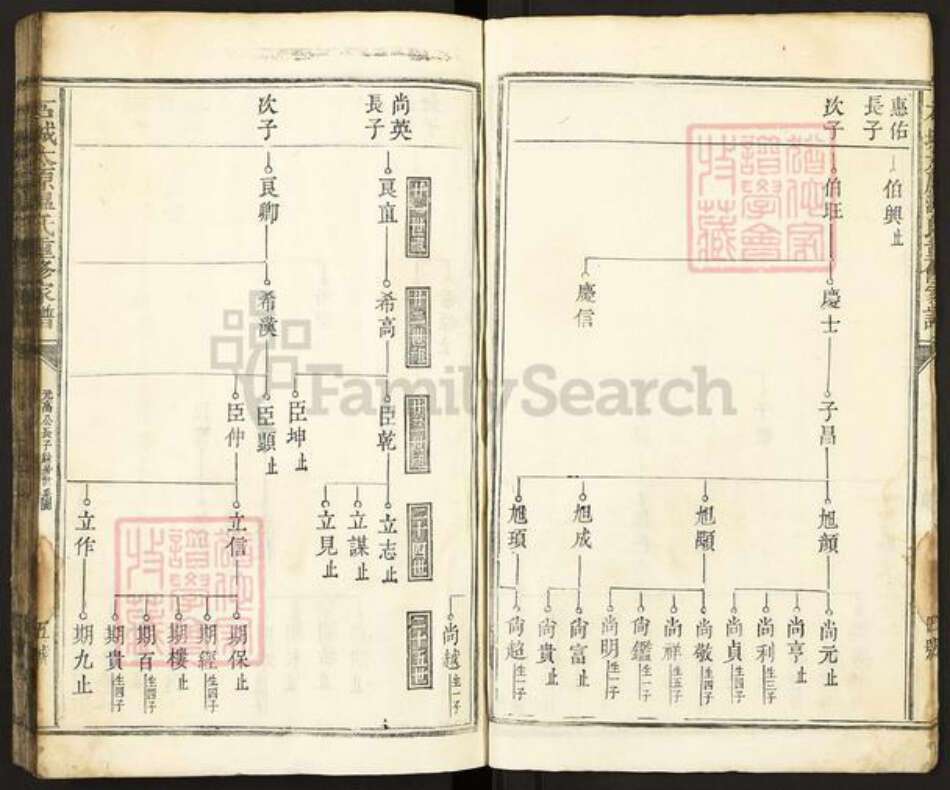 惠佑
長子
伯興止
次子
伯旺
慶士
慶信
子昌
旭顔
旭顯
旭成
旭頊
尚元止
尚亨止
尚利生三子
尚貞生四子
尚敬生四子
尚祥生五子
尚鑑生一子
尚明生一子
尚富止
尚貴止
尚超生一子
尚越生一子
尚英
長子
良直
希高
臣乾
臣坤止
立志止
立謀止
立見止
次子
良卿
希漢
臣顯止
臣仲
立信
立作
期保止
期經生四子
期樓止
期百生四子
期貴生四子
期九止
二十四世
二十五世
石城太原溫氏重修家譜
五號
四號
FamilySearch